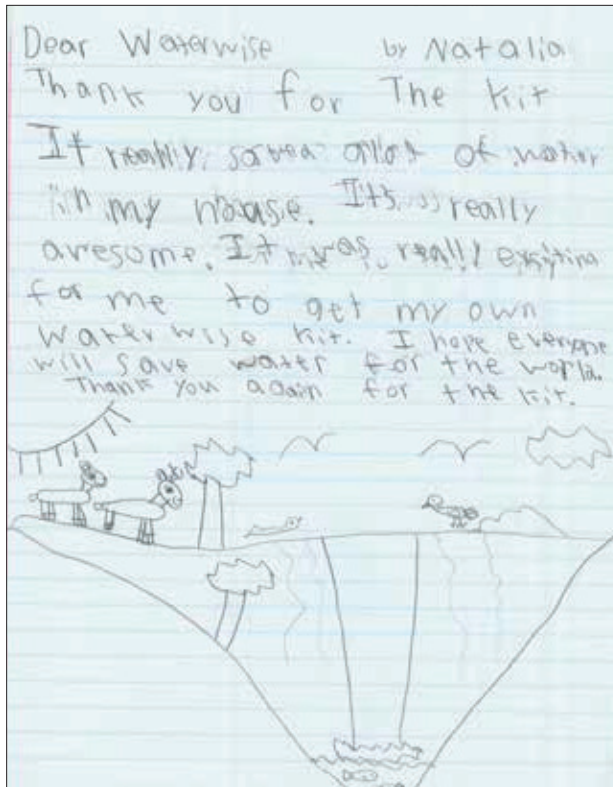 Dear Waterwise by Natalia
Thank you for The kit
It really saved allot of water
in my house. It's really
awesome. It was really exsyting
for me to get my own
Waterwise kit. I hope everyone
will save water for the world.
Thank you again for the kit.